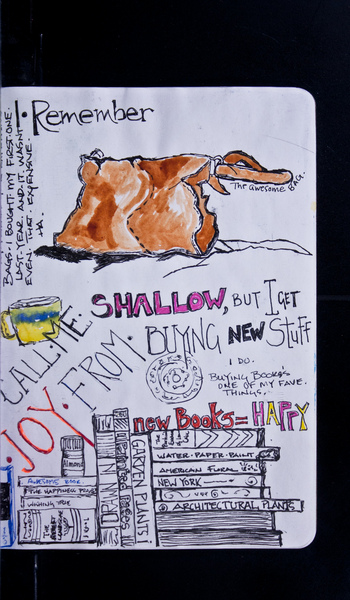 I. Remember
BAGS. I BOUGHT. MY FIRST. ONE.
LAST. YEAR. AND. IT. WASN'T
EVEN. THAT. EXPENSIVE.
HA.
The awesome BAG.
CALL. ME.
SHALLOW, BUT I GET
JOY. FROM. BUYING NEW Stuff
I DO.
BUYING BOOKS
ONE OF MY FAVE.
THINGS.
new Books = HAPPY
Almond
AWESOME BOOK
THE HAPPINESS
WATER. PAPER. PAINT
AMERICAN RURAL
NEW YORK
ARCHITECTURAL PLANTS
GARDEN PLANTS